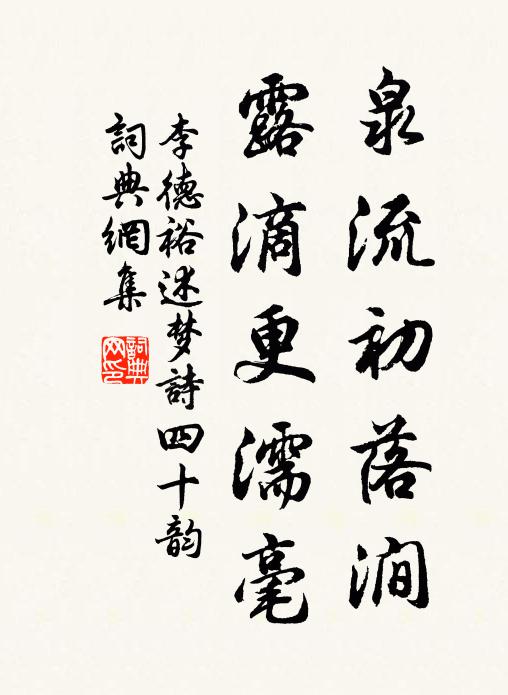 泉流初落澗
露滴更濡毫
李德裕述梦詩四十韵
詞典網集
詞典網印